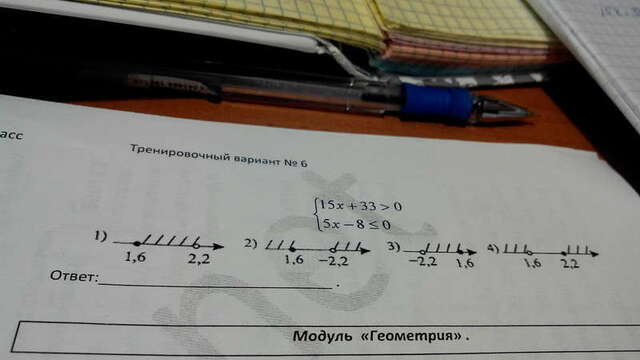 асс
Тренировочный вариант № 6
15x + 33 > 0
5x − 8 ≤ 0
1) 2) 3) 4)
1,6 2,2 1,6 −2,2 −2,2 1,6 1,6 2,2
Ответ:____________________.
Модуль «Геометрия».